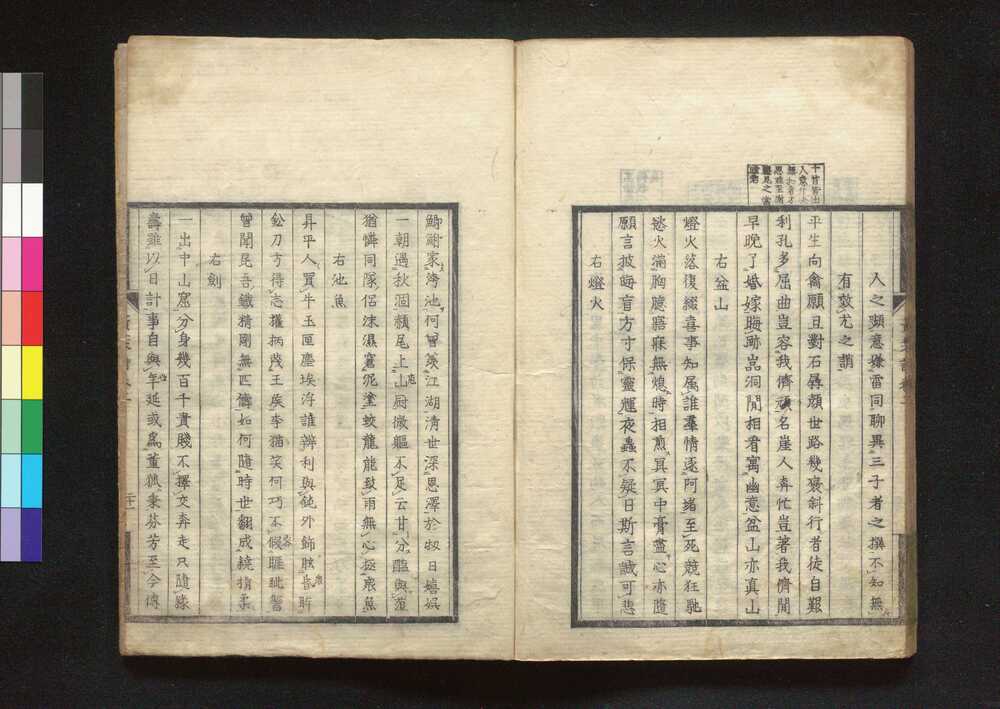 人之頰意嫌雷同聊異三子者之撰不知無
有效尤之誚
平生向禽願且對石孱顏世路幾褒斜行者徒自艱
利孔多屈曲豈容我儕頑名崖人奔忙豈著我儕閒
早晚了婚嫁晦跡嵓洞間相看寓幽意盆山亦真山
右盆山
燈火落復綴喜事知屬誰羣情逐阿堵至死競狂馳
慾火滿胸臆寤寐無熄時相煎冥冥中膏盡心亦隨
願言披晦盲方寸保靈輝夜蟲不疑日斯言誠可悲
右燈火
鄰家湾池何曾羨江湖清世深思澤於牣日嬉娯
一朝過秋涸頳尾上山厨微軀不足云甘分醢與
猶憐同隊侶沫濕窘泥塗蛟龍能致雨無心拯衆魚
右池魚
昇平人買牛玉匣塵埃涬誰辨利與鈍外飾眩昏盺
鉛刀方得志攉柄茂王侯李猫笑何巧不候睚眦讐
曾聞昆吾鐵精剛無匹儔如何隨時世翻成繞指柔
右劍
一出中山窟分身幾百千貴賤不擇交奔走只隨緣
壽雖以日計事自與年延或爲董狐秉芬芳至今傳